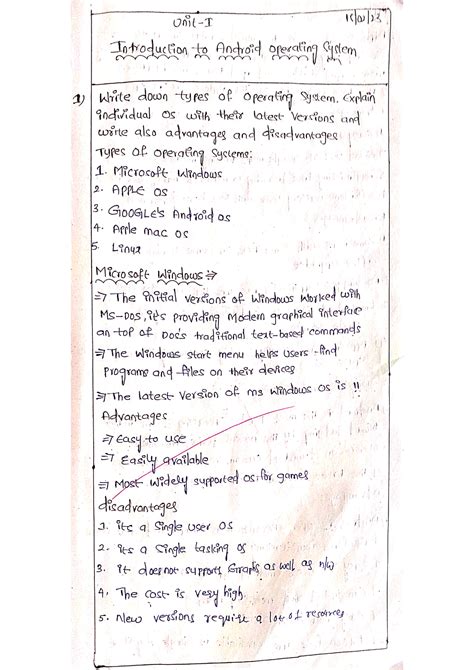 Unit-I
15/02/23
Introduction to Android operating System
1) Write down types of operating System. Explain
individual OS with their latest versions and
write also advantages and disadvantages
Types of operating Systems:
1. Microsoft Windows
2. APPLE OS
3. GOOGLE's Android os
4. Apple mac os
5. Linux
Microsoft Windows ⇒
⇒ The initial versions of Windows worked with
MS-DOS, it's providing Modern graphical interface
on top of Doc's traditional text-based commands
⇒ The Windows start menu helps users find
programs and files on their devices
⇒ The latest version of ms Windows OS is 11
Advantages
⇒ Easy to use
⇒ Easily available
⇒ Most Widely supported os for games
disadvantages
1. its a Single user OS
2. its a Single tasking os
3. it doesnot supports as well as n/w
4. The cost is very high.
5. New versions require a lot of resorces